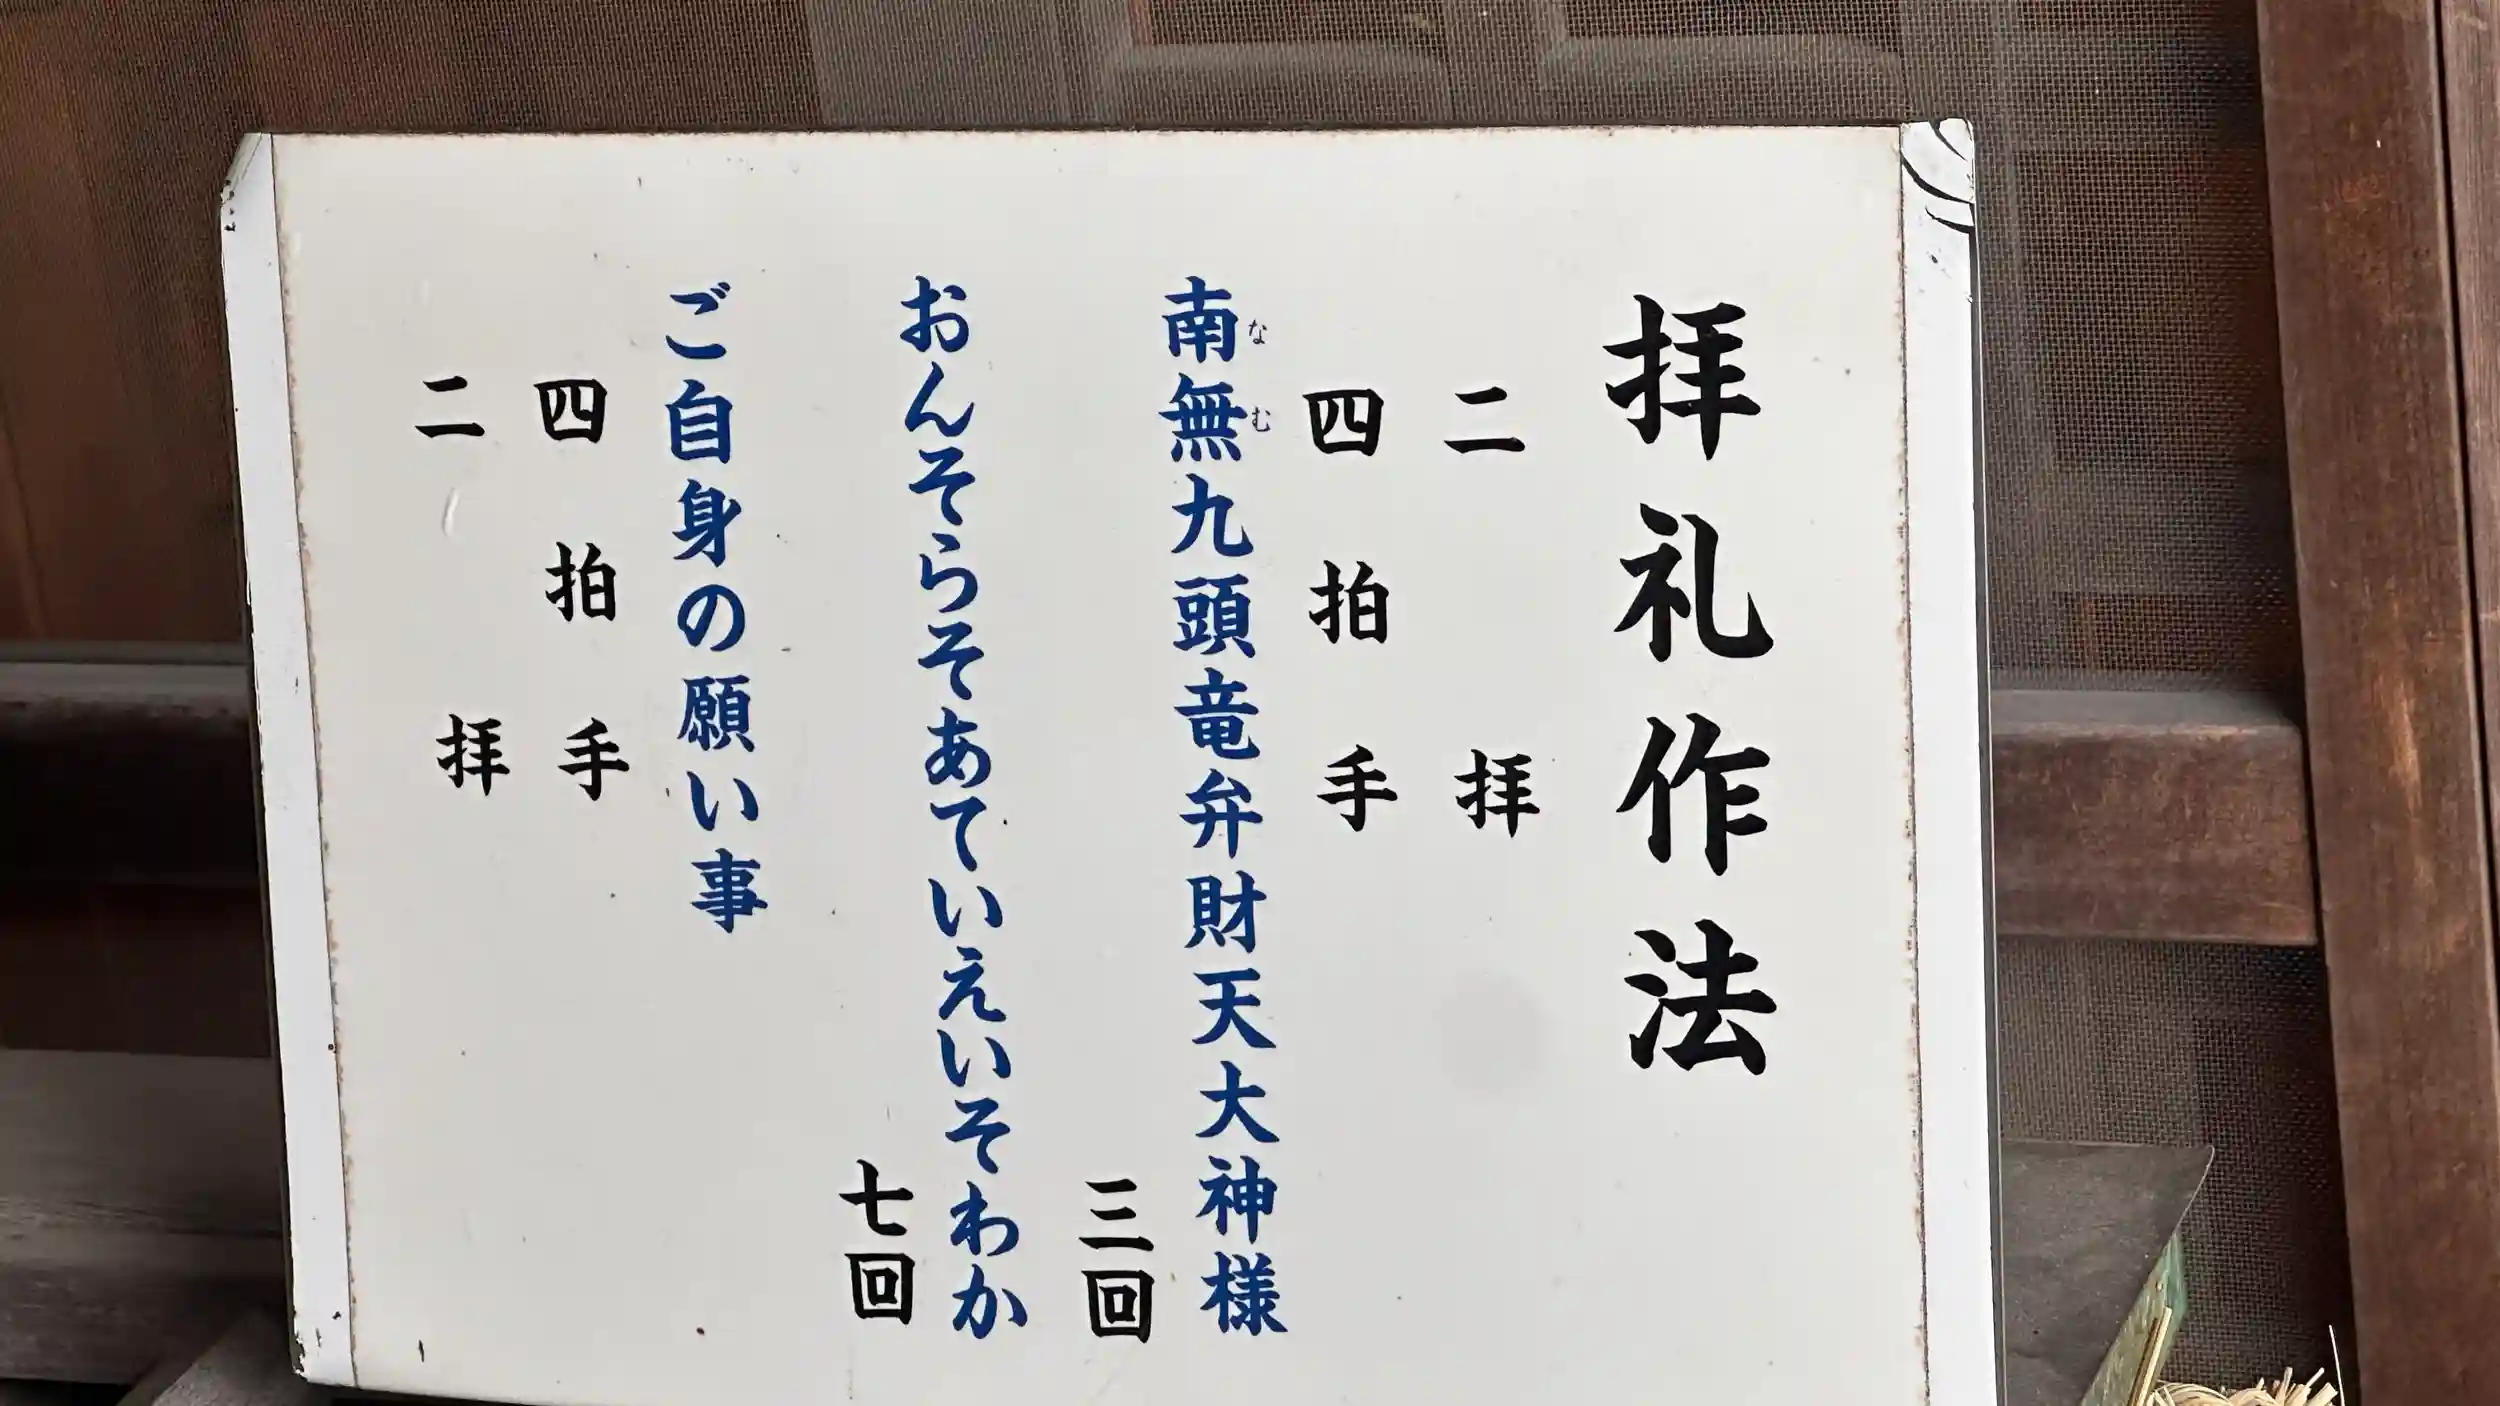 拝礼作法
二拝
四拍手
なむ
南無九頭竜弁財天大神様
三回
おんそらそあていえいそわか
七回
ご自身の願い事
四拍手
二拝